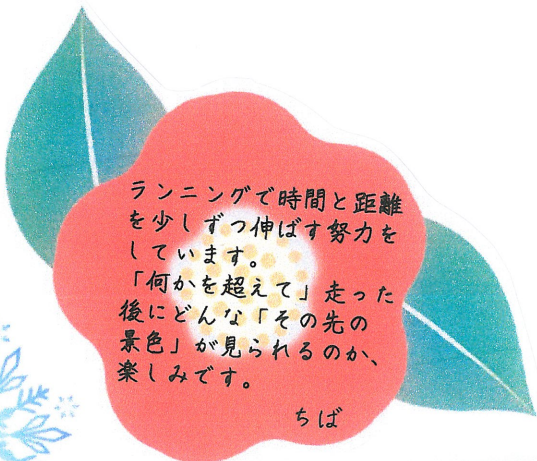 ランニングで時間と距離
を少しずつ伸ばす努力を
しています。
「何かを超えて」走った
後にどんな「その先の
景色」が見られるのか、
楽しみです。
ちば